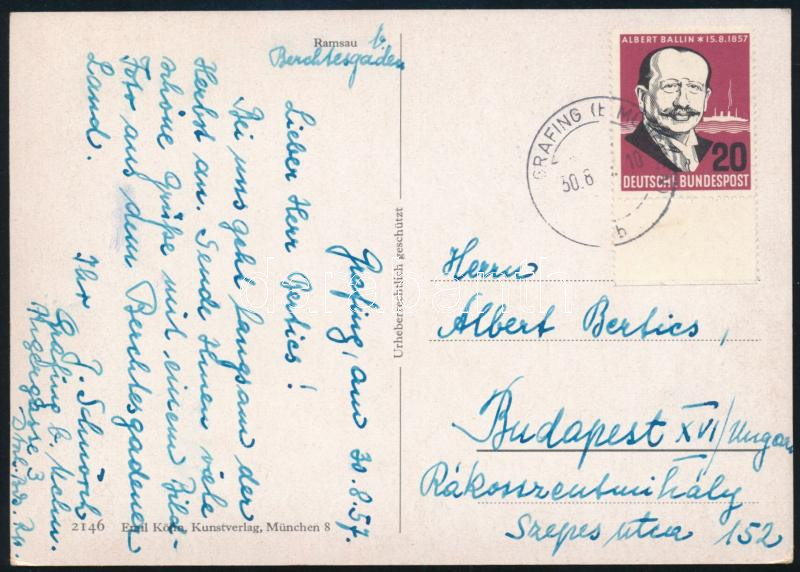 Ramsau b.
Berchtesgaden
Grafing, am 30.8.57.
Lieber Herr Bertics!
Bei uns geht langsam der
Herbst an. Sende Ihnen viele
schöne Grüße mit einem
Foto aus dem Berchtesgadener
Land.
Ihr
J. Schnörch
Grafing b. Mchn.
2146 Emil Köhn, Kunstverlag, München 8
Urheberrechtlich geschützt
ALBERT BALLIN * 15.8.1857
20
DEUTSCHE BUNDESPOST
GRAFING (b MÜ
30.8
10
b
Herrn
Albert Bertics,
Budapest XVI/Ungarn
Rákosszentmihály
Szepes utca 152